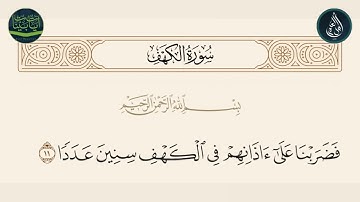 سُورَةُ الْكَهْفِ
بِسْمِ اللَّهِ الرَّحْمَٰنِ الرَّحِيمِ
فَضَرَبْنَا عَلَىٰٓ ءَاذَانِهِمْ فِي ٱلْكَهْفِ سِنِينَ عَدَدًا ١١